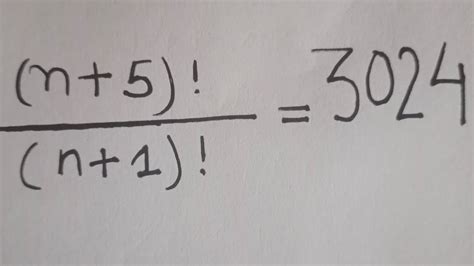 (n+5)!
(n+1)!
= 3024